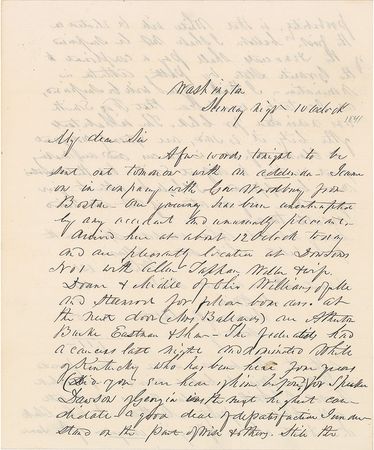 Washington
Sunday night 10 Oclock
1841
My dear Sir
A few words tonight to be
sent out tomorrow with an addenda. I came
on in company with Gov Woodbury from
Boston Our journey has been uninterrupted
by any accident and unusually pleasant.
Arrived here at about 12 Oclock today
and are pleasantly located at Dowsons
No 1 with Allen Tappan, Weller & wife
Doane & Medill of Ohio Williams of Me
and for fellow boarders. at
the next door (Mrs Ballards) are Atherton
Burke Eastman & Shaw - The federalists had
a caucus last night and nominated White
of Kentucky who has been here four years
(Did you ever hear of him before) for Speaker
Dawson of Georgia was the next highest can
didate a good deal of dissatisfaction I under
stand on the part of Wise & others. Still the